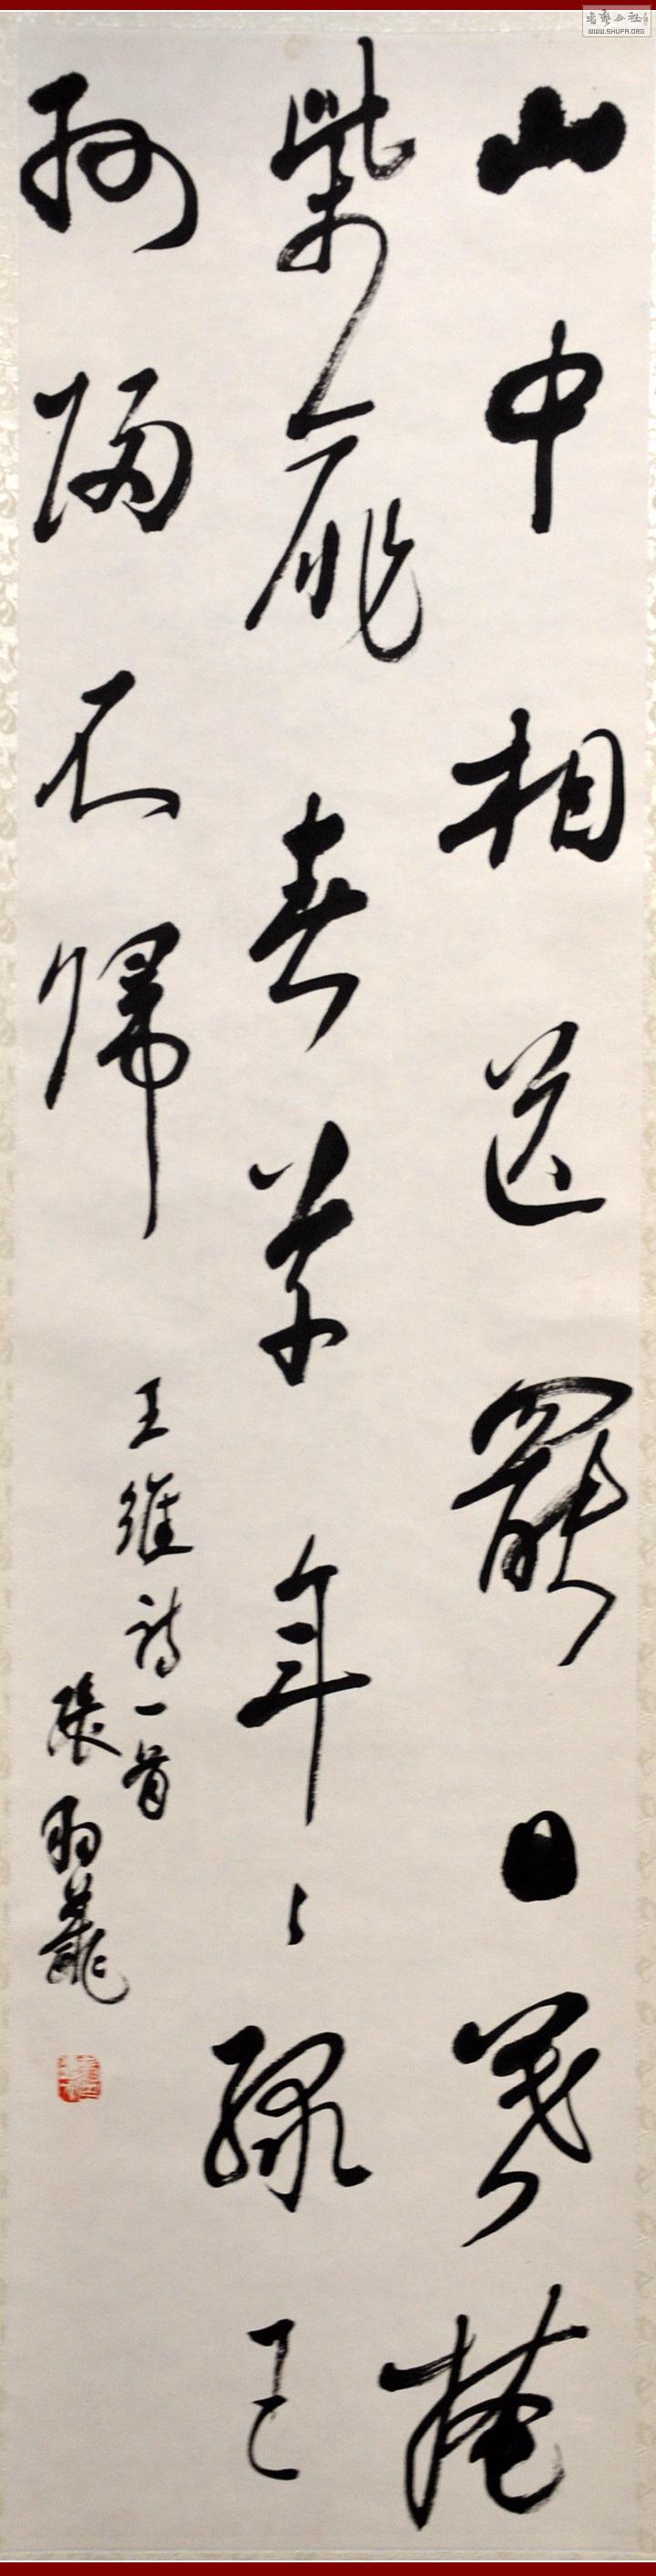 山中相送罷日暮掩
柴扉春草年〻綠王
孫歸不歸
王維詩一首
張
WWW.SHUFA.ORG